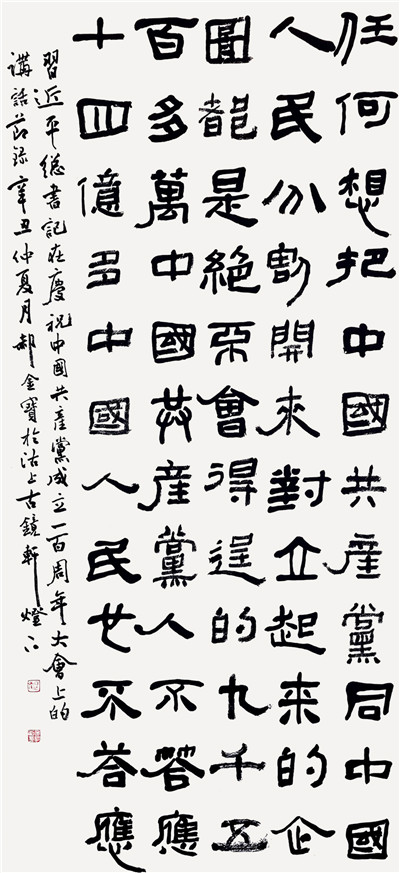 任何想把中國共產黨同中國
人民分割開來對立起來的企
圖都是絕不會得逞的九千五
百多萬中國共產黨人不答應
十四億多中國人民也不答應
習近平總書記在慶祝中國共產黨成立一百周年大會上的
講話節録辛丑仲夏月郝金寶於沽上古鏡軒燈下